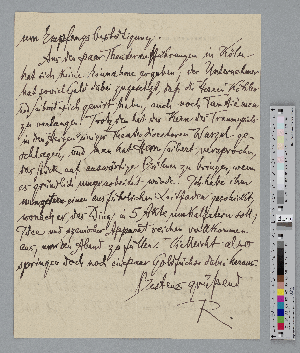 um Empfangsbestätigung.
Aus den paar Theateraufführungen in Köln
hat sich keine Einnahme ergeben, der Unternehmer
hat soviel Geld dabei zugesetzt, daß die Herren
nicht auch noch Tantiemen
zu verlangen. Trotzdem hat der Kern des Traumspiels
in den Herzen einiger Theaterdirectoren Wurzel ge-
schlagen, und man hat Herrn versprochen
das Stück auf auswärtige Bühnen zu bringen, wenn
es gründlich umgearbeitet würde. Ich habe ihm
einen ausführlichen Leitfaden geschickt,
wonach er das Ding in 5 Akte umkalfatern soll;
Ideen und szenischer Apparat reichen vollkommen
aus, um den Abend zu füllen. Vielleicht also
springen doch noch ein paar Goldfüchse dabei heraus.
Bestens grüßend
R.